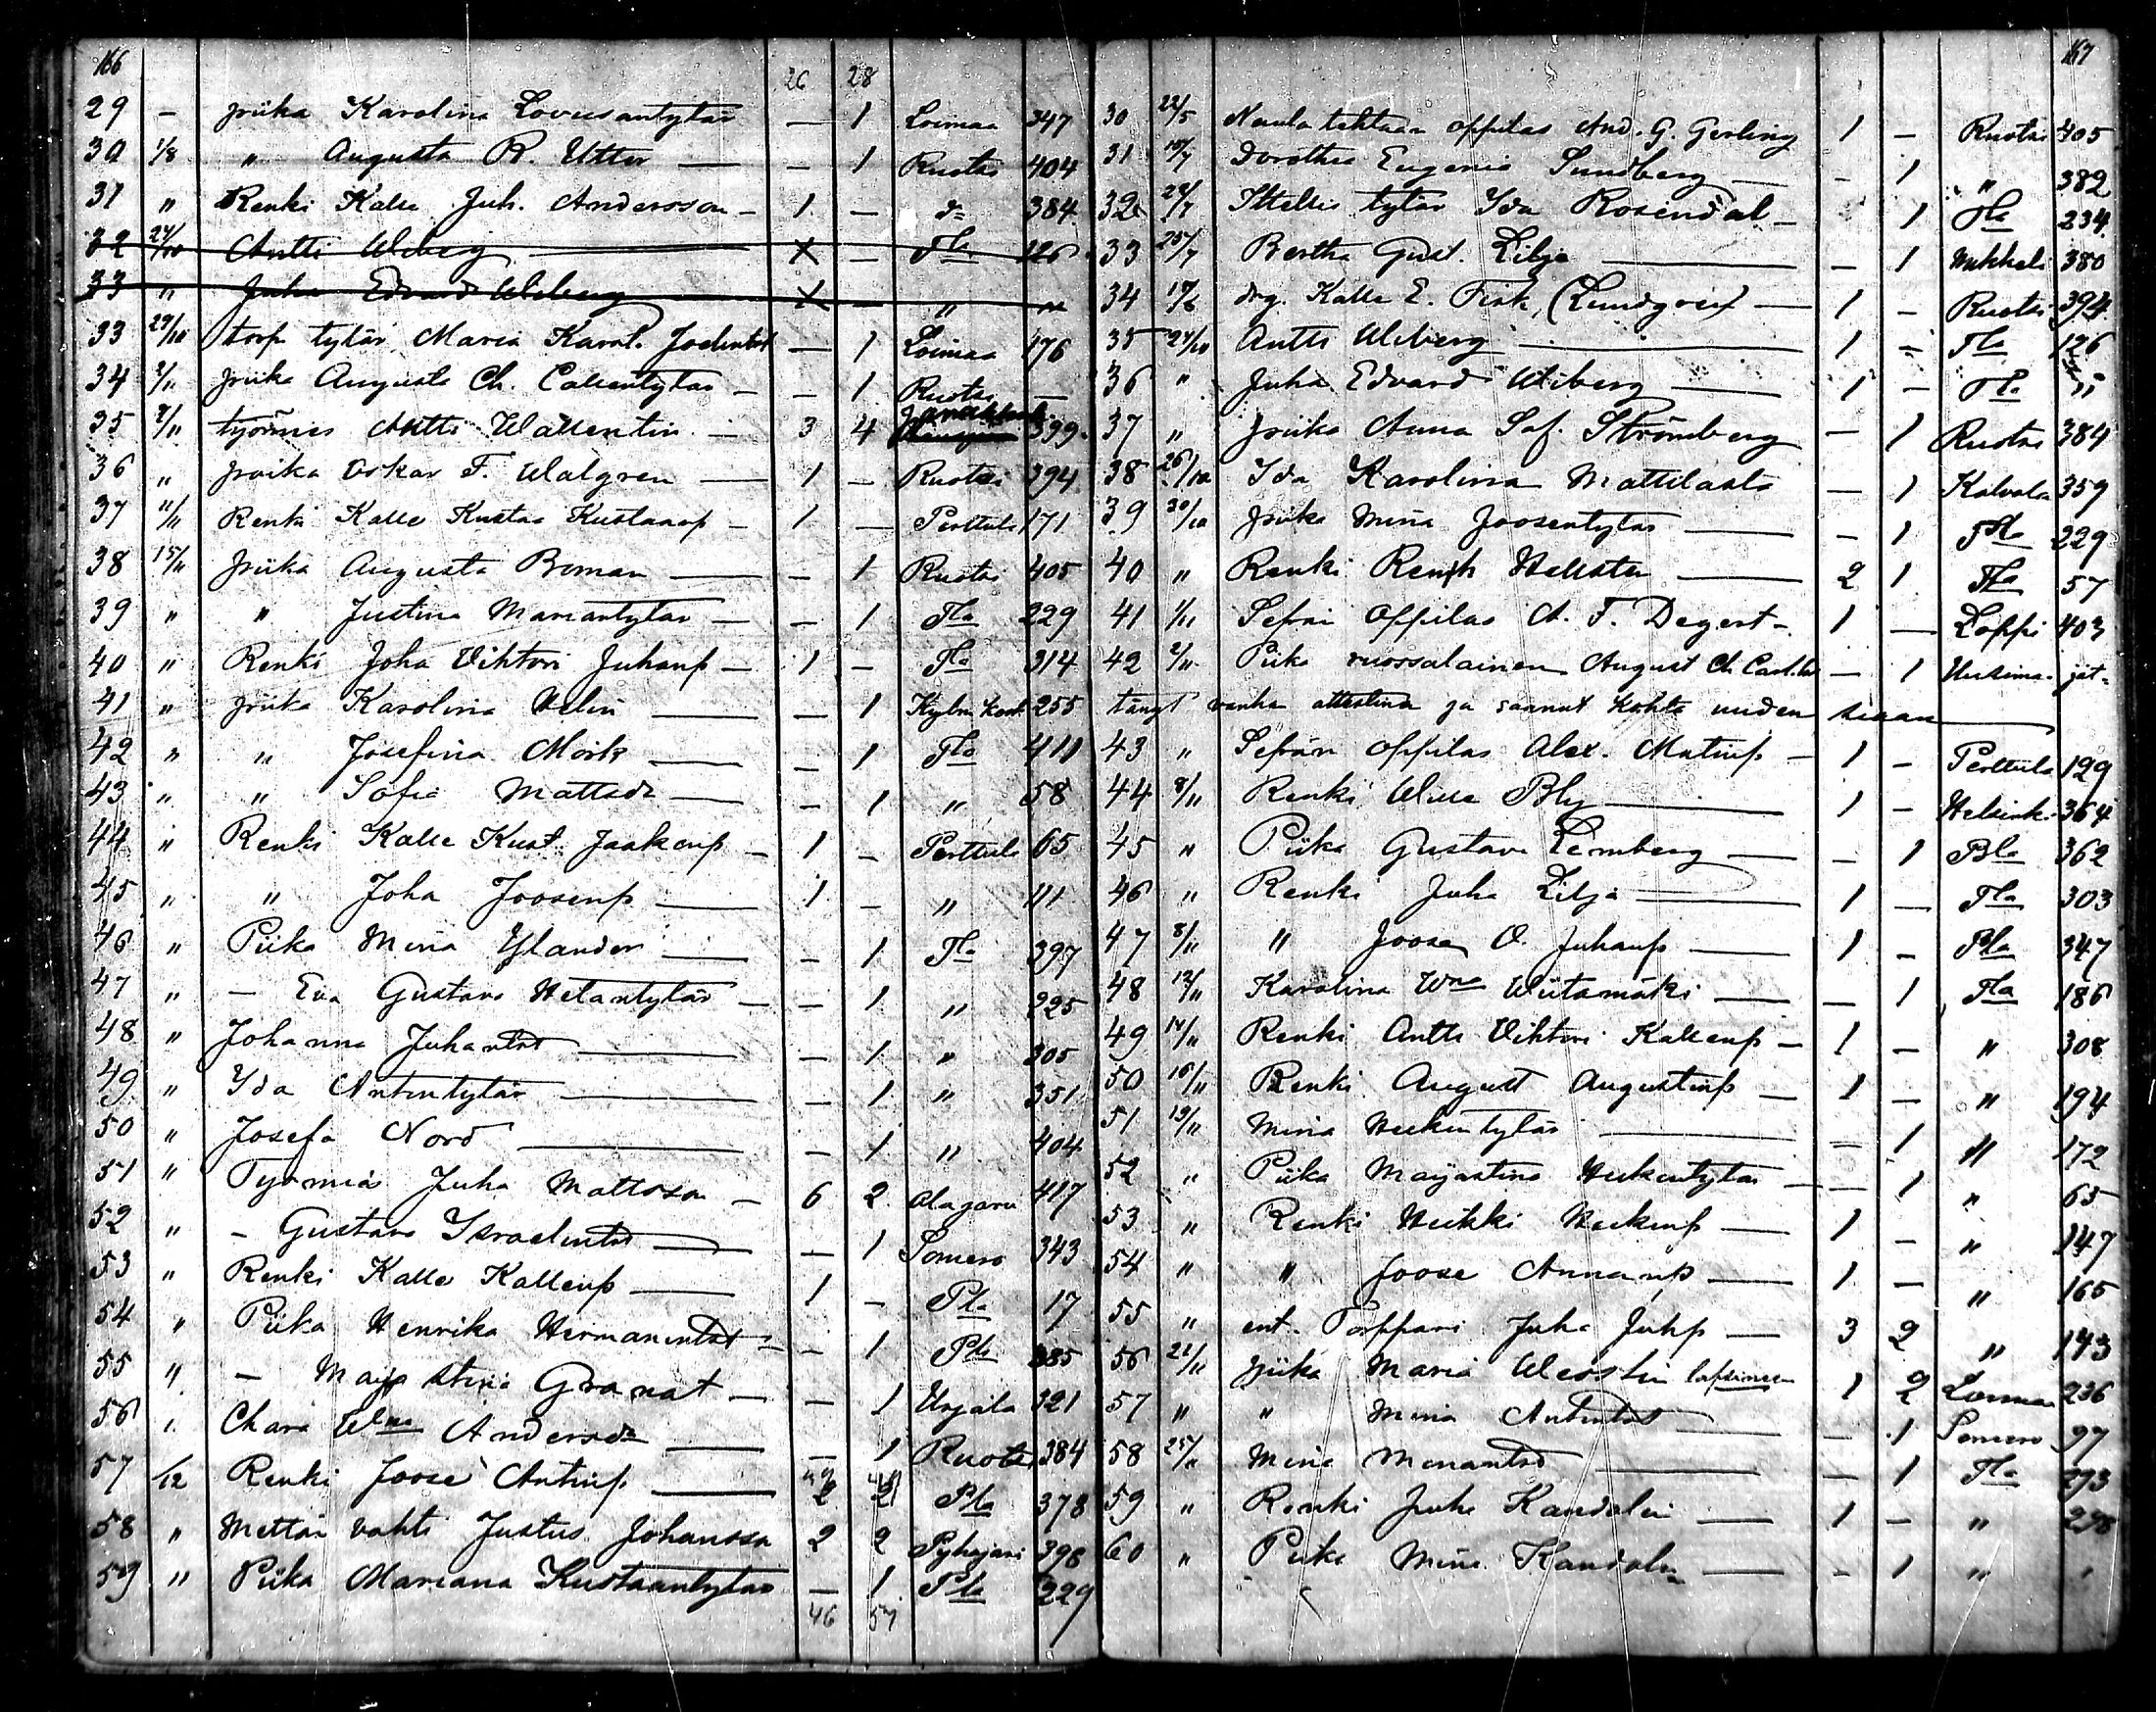 166
26 28
29 - piika Karolina Lovisantytär — 1 Loimaa 347
30 1/8 " Augusta R. Utter — — 1 Ruotsi 404
31 " Renki Kalle Juh. Andersson - 1 — d:o 384
32 24/10 Antti Wiberg — X — Tla 126
33 " Juha Edvard Wiberg — X — " "
33 29/10 torp tytär Maria Karol. Joelintyt — 1 Loimaa 176
34 2/11 piika Augusta Ch. Callentytar - — 1 Ruotsi —
35 9/11 työmies Antti Wallentin — 3 4 399
36 " poika Oskar F. Walgren — 1 — Ruotsi 394
37 11/11 Renki Kalle Kustaa Kustaanp - 1 — Perttula 171
38 15/11 piika Augusta Boman — — 1 Ruotsi 405
39 " " Justina Mariantytär — — 1 Tla 229
40 " Renki Joha Vihtori Juhanp — 1 — Tla 314
41 " piika Karolina Helin — — 1 255
42 " " Josefina Mörk — — 1 Tla 411
43 " " Sofia Mattsdr — — 1 " 58
44 " Renki Kalle Kust. Jaakonp — 1 — Perttula 65
45 " " Joha Joosenp — 1 — " 111
46 " Piika Mina Ylander — — 1 Tla 397
47 " — Eva Gustava — 1 " 225
48 " Johanna Juhantyt — — 1 " 305
49 " Yda Antintytär — — 1 " 351
50 " Josefa Nord — — 1 " 404
51 " Työmiäs Juha Mattsson — 6 2 417
52 " - Gustava Israelintyt — — 1 Somero 343
53 " Renki Kalle Kallenp — 1 — Pla 17
54 " Piika Henrika Hermanintyt — — 1 Pla 385
55 " — Maija Stina Granat — — 1 Urjala 321
56 " Clara Wma Andersdr — — 1 Ruotsi 384
57 1/12 Renki Joose Antinp — Pla 378
58 " Mettän vahti Justus Johansson 2 2 Pyhäjärvi 398
59 " Piika Mariana Kustaantytär — 1 Pla 229
46 57
167
30 22/5 Naula tehtaan oppilas And. G. Gerling 1 — Ruotsi 405
31 15/7 Dorothea Eugenia Sundberg — - 1 " 382
32 22/7 Ittellis tytär Yda Rosendal — 1 Tla 234
33 25/7 Bertha Gust. Lilja — — 1 Mikkeli 380
34 Kalle E. Fisk, (Lundqvist — 1 — Ruotsi 394
35 24/10 Antti Wiberg — 1 — Tla 126
36 " Juha Edvard Wiberg — 1 — Tla "
37 " piika Anna Sof. Strömberg — 1 Ruotsi 384
38 26/10 Ida Karolina Mattilasta — 1 Kalvola 359
39 30/10 piika Mina Joosentytär — — 1 Tla 229
40 " Renki Hellsten — 2 1 Tla 57
41 1/11 Sepän oppilas A. F. Degert - 1 — Loppi 403
42 2/11 Piika ruossalainen August Ch. — 1 jät-
tänyt vanha attestina ja saanut kohta uuden sijaan
43 " Sepän oppilas Alex. Matinp — 1 — Perttula 199
44 8/11 Renki Wille Bly — 1 — Helsinki 364
45 " Piika Gustava Lemberg — — 1 Pla 362
46 " Renki Juha Lilja — 1 — Tla 303
47 8/11 " Joose O. Juhanp — 1 — Pla 347
48 12/11 Karolina Wma Wiitamäki — — 1 Tla 186
49 14/11 Renki Antti Vihtori Kallenp — 1 — " 308
50 16/11 Renki August Augustinp — 1 — " 194
51 19/11 Mina Heikintytär — — 1 " 172
52 " Piika Maijastina Heikintytär — — 1 " 65
53 " Renki Heikki Heikinp — 1 — " 147
54 " " Joose Annanp — 1 — " 165
55 " ent. Torppari Juha Juhp — 3 2 " 143
56 22/11 piika Maria Wesslin lapsineen 1 2 Loimaa 236
57 " " Mina Antintyt — — 1 Somero 97
58 25/11 Mina — — 1 Tla 293
59 " Renki Juha Kandolin — 1 — " 298
60 " Piika Mina Kandolin — - 1 " "